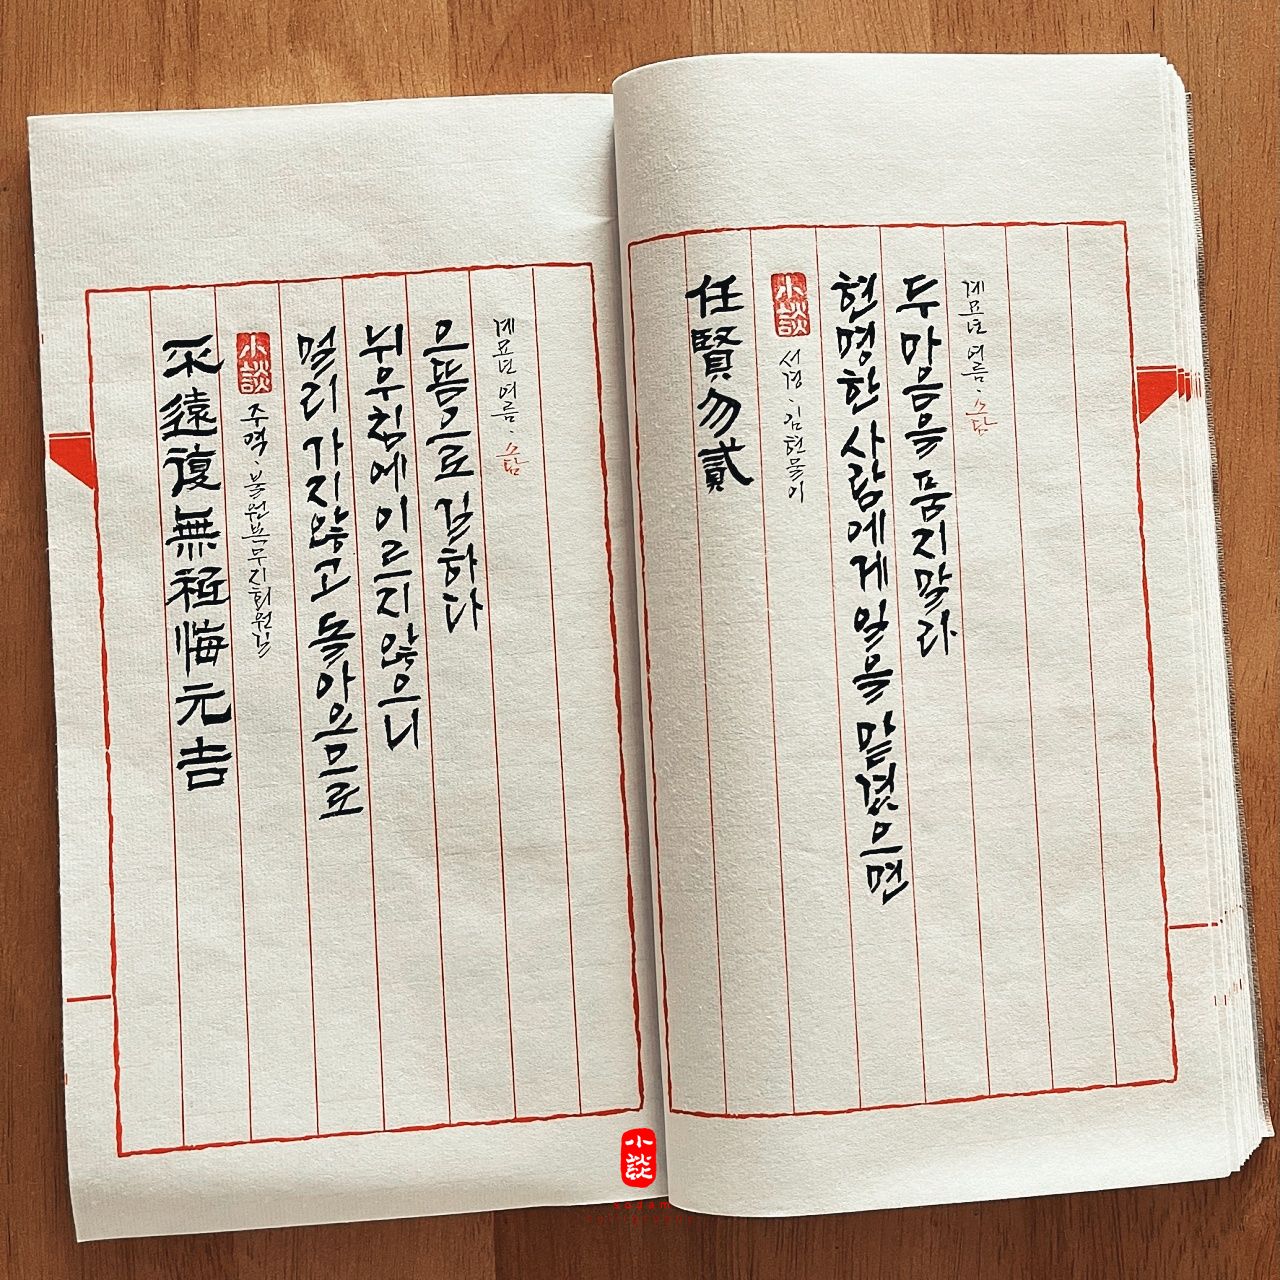 不遠復無祗悔元吉
小談
주역·불원복무지회원길
멀리 가지 않고 돌아오므로
뉘우침에 이르지 않으니
으뜸으로 길하다
계묘년 여름·소담
任賢勿貳
小談
서경·임현물이
현명한 사람에게 일을 맡겼으면
두 마음을 품지 말라
계묘년 여름·소담
小談